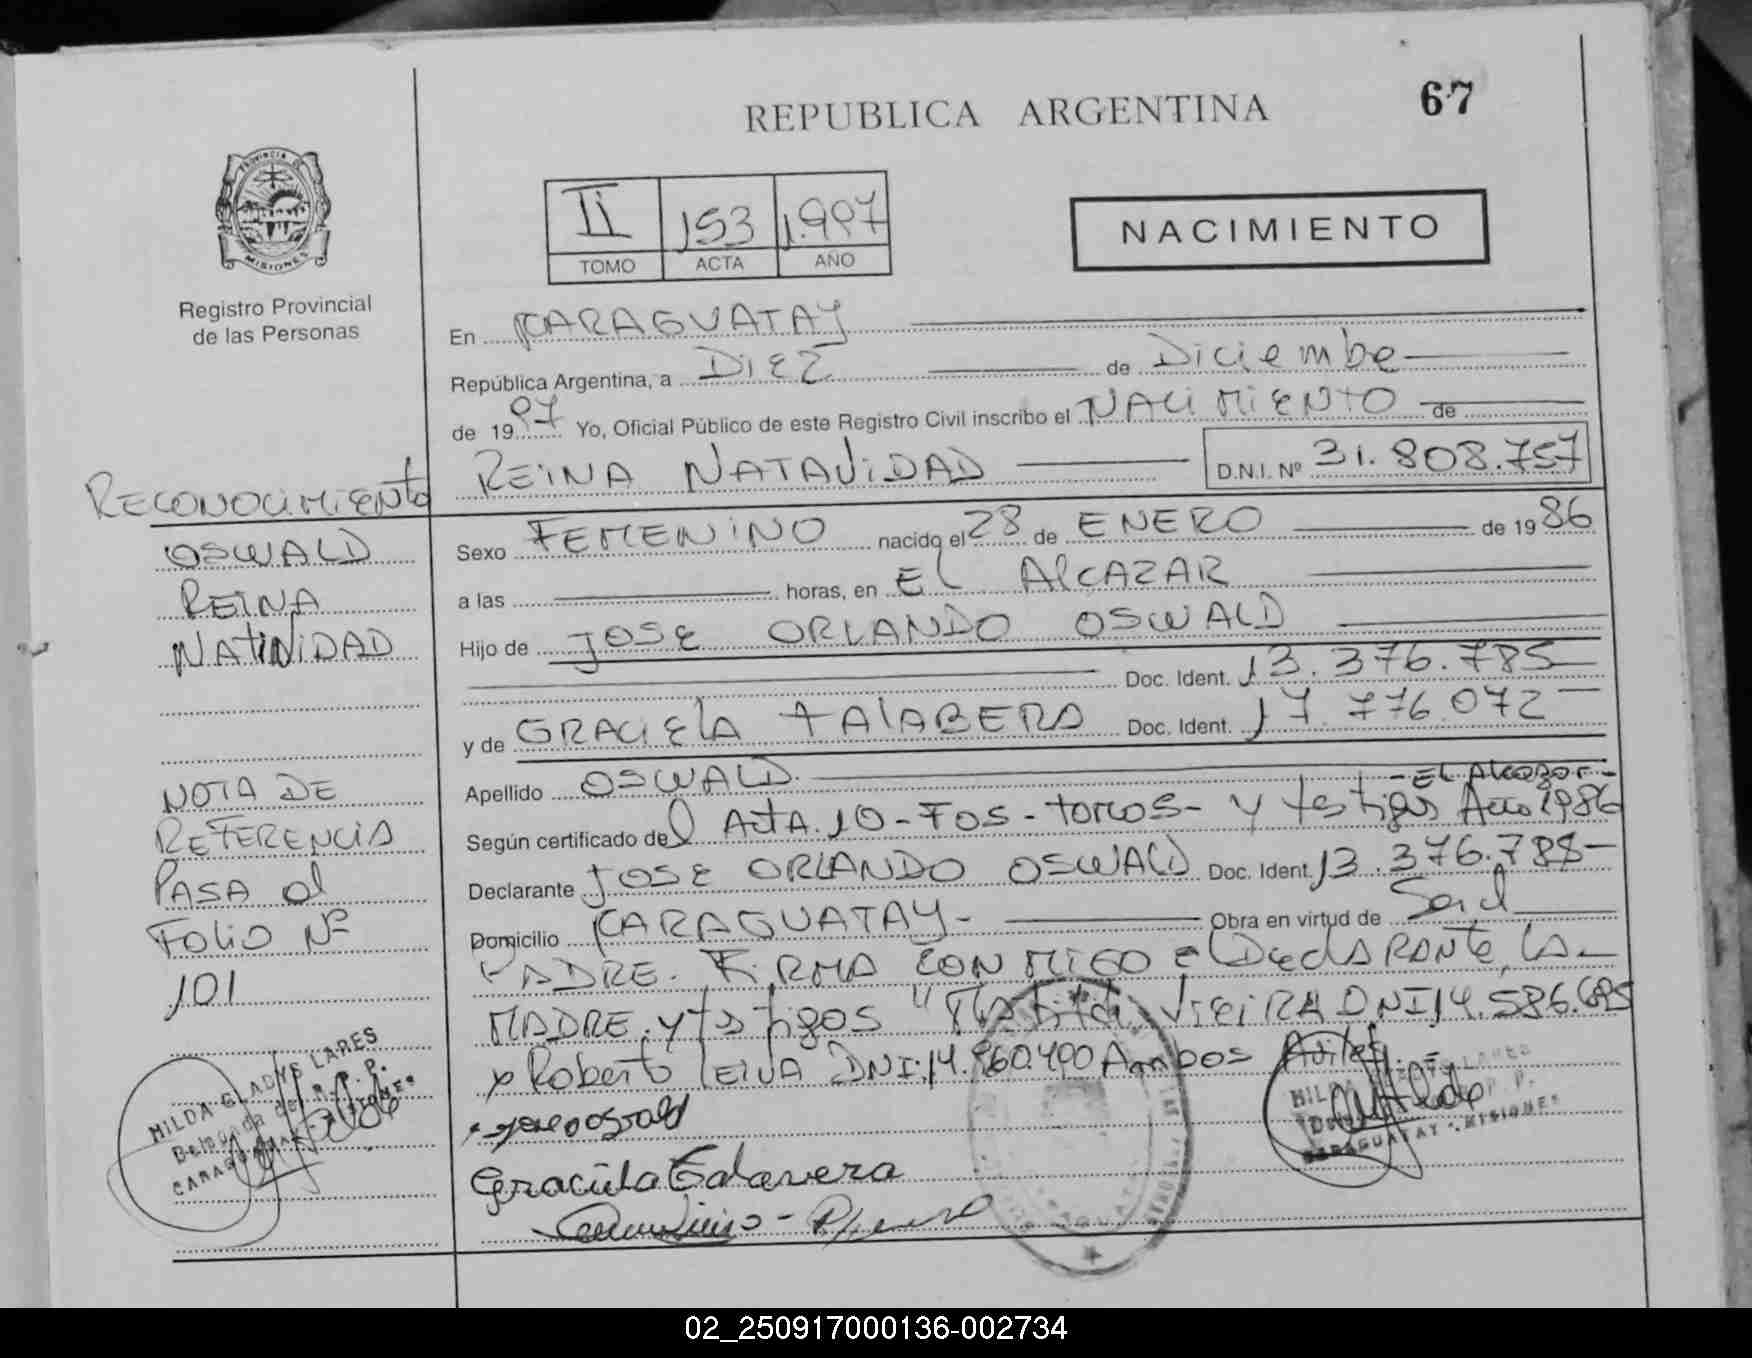 REPUBLICA ARGENTINA
67
PROVINCIA DE
MISIONES
Registro Provincial
de las Personas
II 153 1.997
TOMO ACTA AÑO
NACIMIENTO
En CARAGUATAY
República Argentina, a DIEZ de Diciembe
de 1997 Yo, Oficial Público de este Registro Civil inscribo el NACIMIENTO de
REINA NATAViDAD D.N.I. Nº 31.808.757
RECONOCIMIENTO
OSWALD
REINA
NATIVIDAD
NOTA DE
REFERENCIA
PASA al
FOLIO Nº
101
HILDA GLADYS LARES
Delegada del R. P. P.
CARAGUATAY - MISIONES
Sexo FEMENiNO nacido el 28 de ENERO de 1986
a las horas, en El AlCAZAR
Hijo de JOSE ORLANDO OSWALD
Doc. Ident. 13.376.785
y de GRACIElA TAlABERA Doc. Ident. 17.776.072
Apellido OSWALD
- El Alcazar -
Según certificado del ActA.10-Fos-torcos- y testigos Año 1986
Declarante JOSE ORLANDO OSWALD Doc. Ident. 13.376.788-
Domicilio CARAGUATAY- Obra en virtud de Ser el
PADRE. FiRMA CON MIGO el DeclARANte, LA-
MADRE, y testigos "Matilde VieiRA DNI 14.586.695
y Roberto lEIVA DNI:14.960.400 Ambos
Graciela Talavera
HILDA GLADYS LARES
CARAGUATAY - MISIONES
02_250917000136-002734